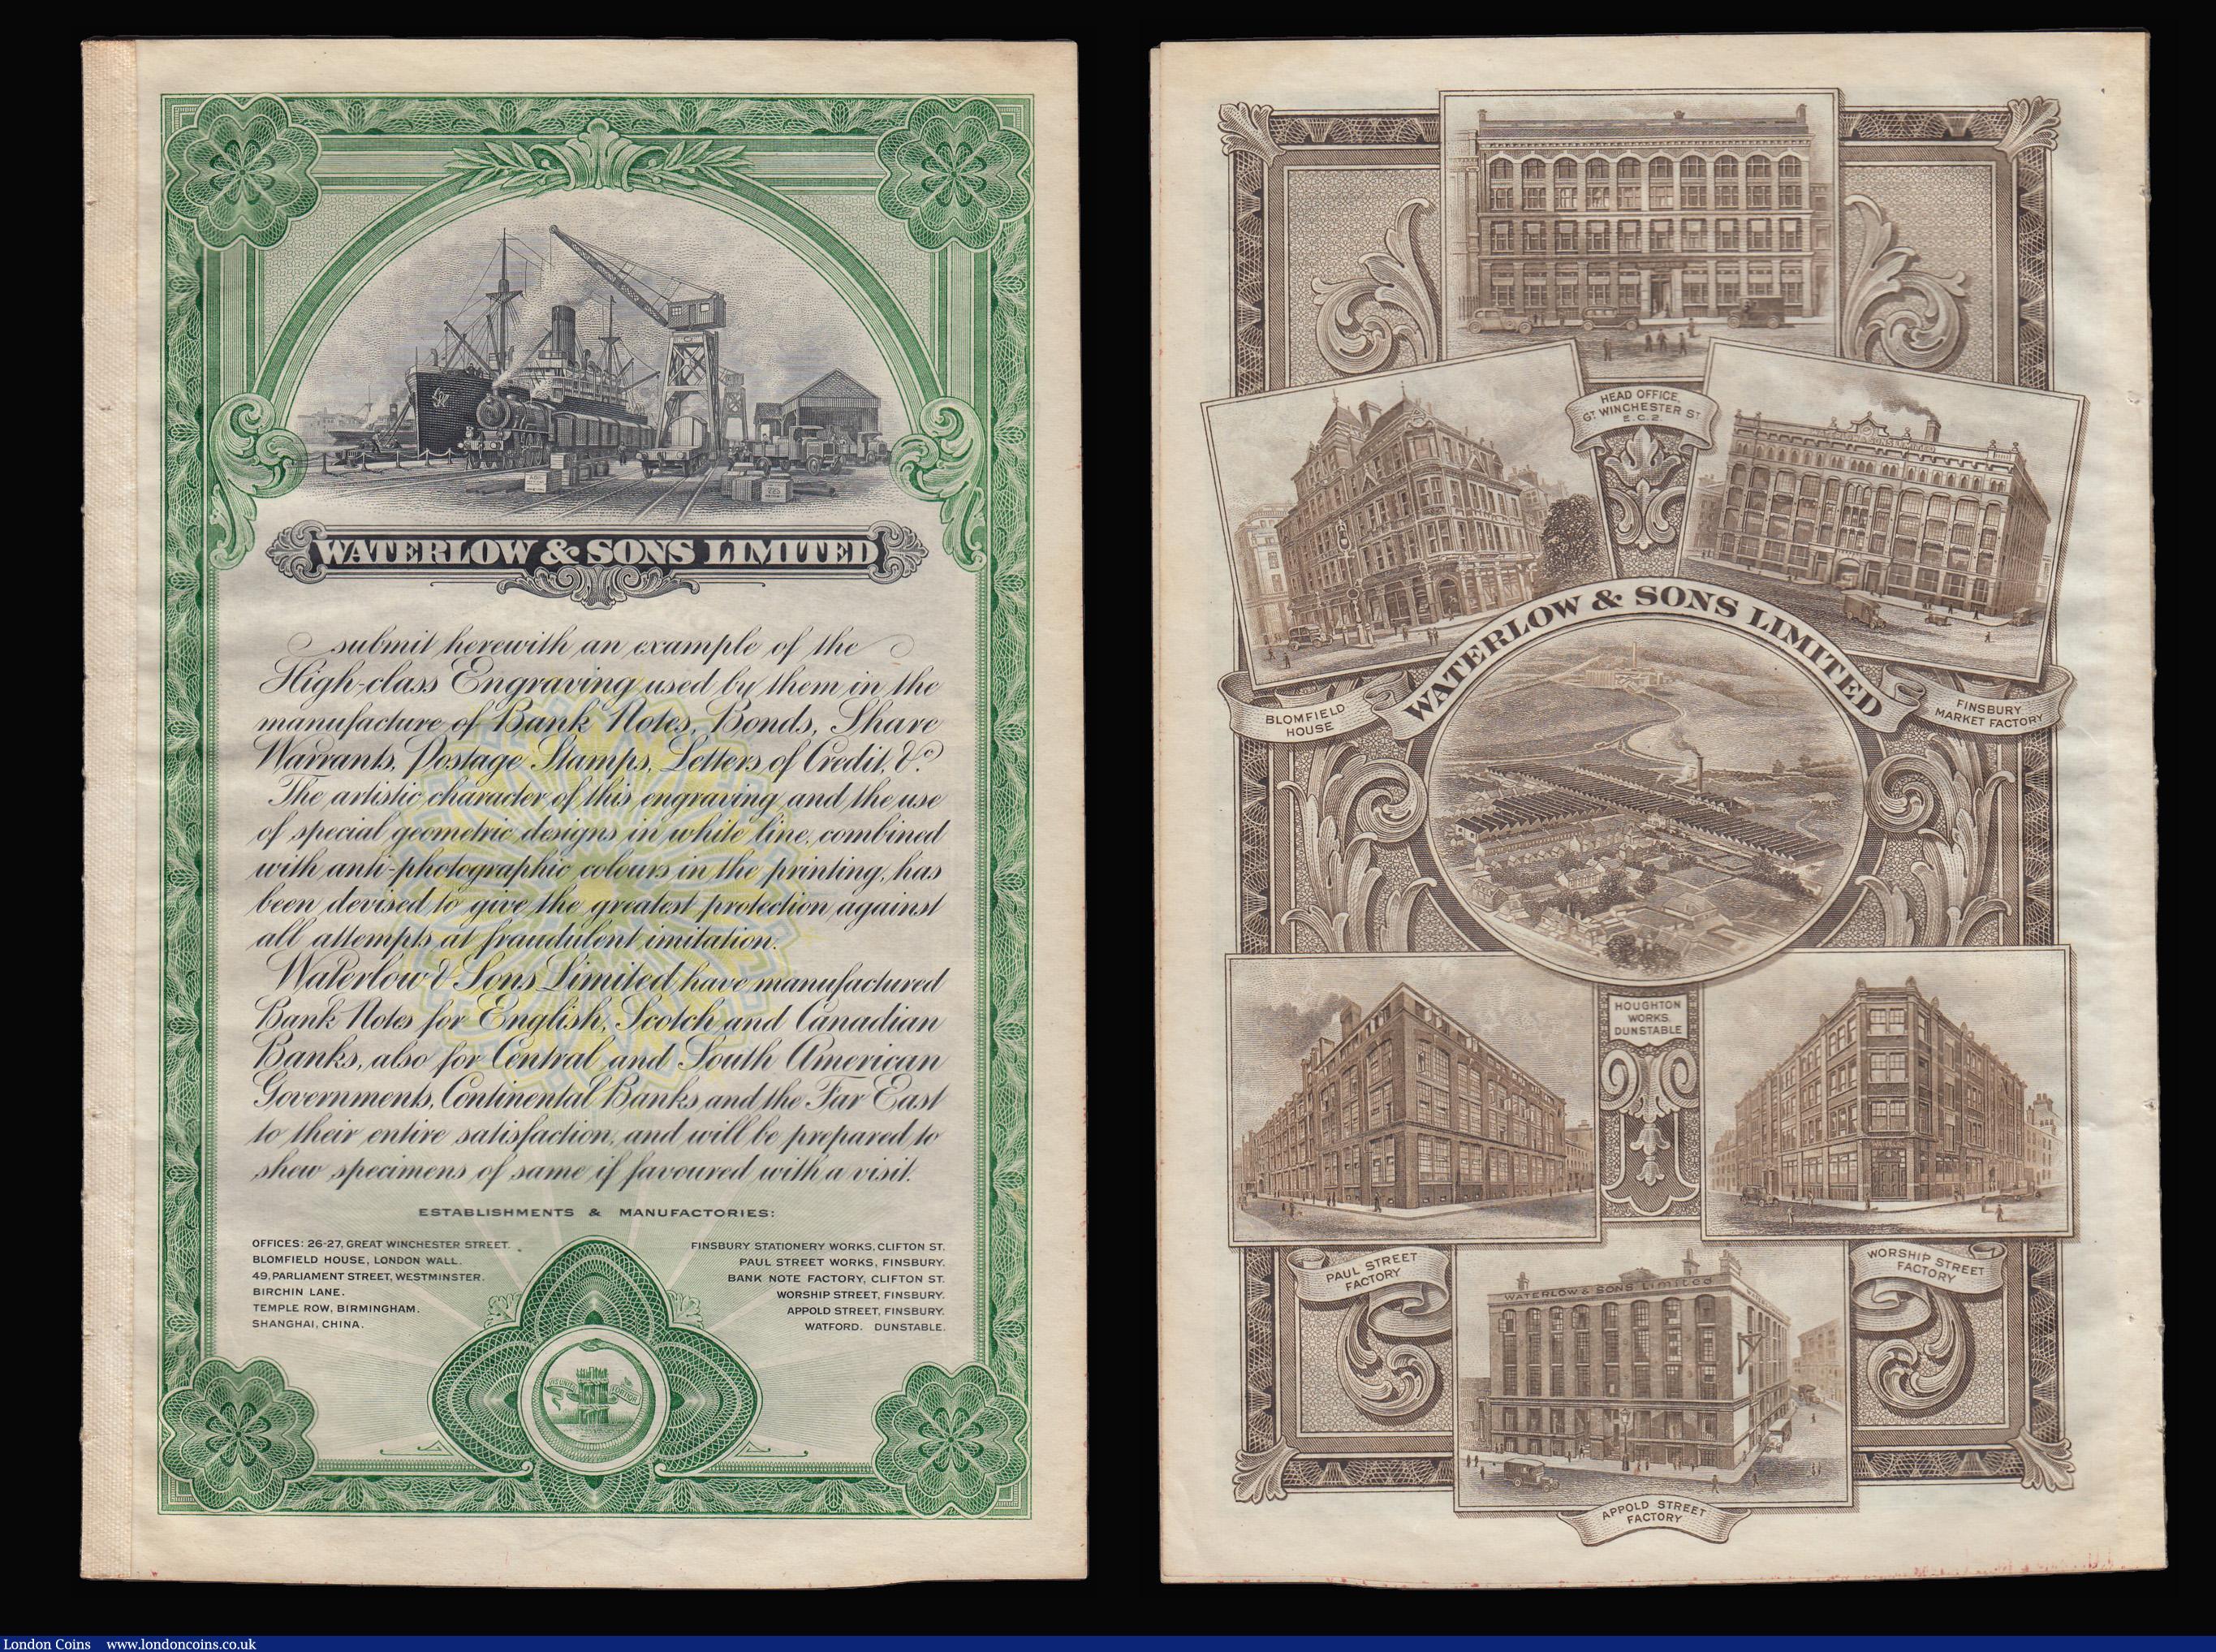 WATERLOW & SONS LIMITED
submit herewith an example of the
High-class Engraving used by them in the
manufacture of Bank Notes, Bonds, Share
Warrants, Postage Stamps, Letters of Credit, &c.
The artistic character of this engraving and the use
of special geometric designs in white line, combined
with anti-photographic colours in the printing, has
been devised to give the greatest protection against
all attempts at fraudulent imitation.
Waterlow & Sons Limited have manufactured
Bank Notes for English, Scotch and Canadian
Banks, also for Central and South American
Governments, Continental Banks and the Far East
to their entire satisfaction, and will be prepared to
shew specimens of same if favoured with a visit.
ESTABLISHMENTS & MANUFACTORIES:
OFFICES: 26-27, GREAT WINCHESTER STREET.
BLOMFIELD HOUSE, LONDON WALL.
49, PARLIAMENT STREET, WESTMINSTER.
BIRCHIN LANE.
TEMPLE ROW, BIRMINGHAM.
SHANGHAI, CHINA.
FINSBURY STATIONERY WORKS, CLIFTON ST.
PAUL STREET WORKS, FINSBURY.
BANK NOTE FACTORY, CLIFTON ST.
WORSHIP STREET, FINSBURY.
APPOLD STREET, FINSBURY.
WATFORD. DUNSTABLE.
HEAD OFFICE,
GT WINCHESTER ST
E.C.2
BLOMFIELD
HOUSE
WATERLOW & SONS LIMITED
FINSBURY
MARKET FACTORY
HOUGHTON
WORKS,
DUNSTABLE
PAUL STREET
FACTORY
WORSHIP STREET
FACTORY
WATERLOW & SONS Limited
APPOLD STREET
FACTORY
London Coins www.londoncoins.co.uk